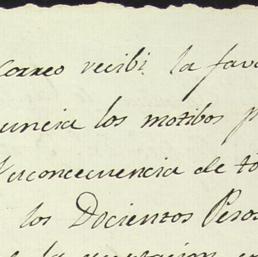 Correo recibi la fav
uncia los motibos p
Verconcecuencia de to
los Docientos Pesos